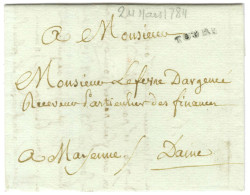 24 Mars 1784
A Monsieur
Monsieur Leferne Dargence
Receveur Particulier des finances
A Mayenne